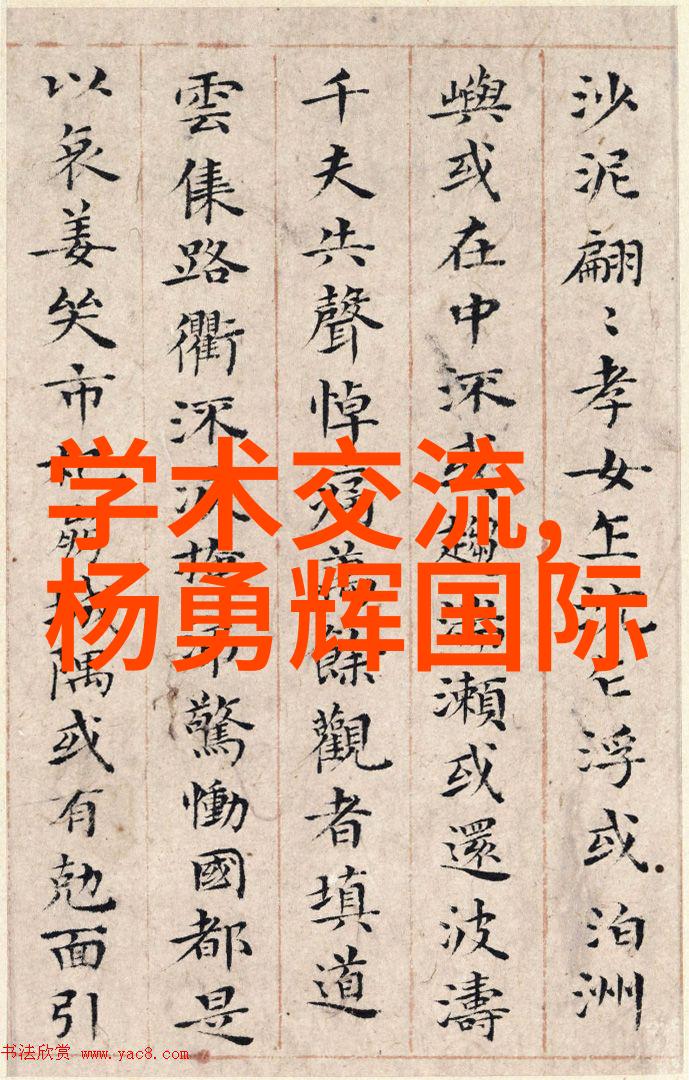 沙泥翩〻孝女乍沉乍浮或泊洲
嶼或在中深或趨湍瀨或還波濤
千夫共聲悼痛萬餘觀者填道
雲集路衢驚慟國都是
以哀姜哭市杞崩城隅或有剋面引
学术交流,
杨勇辉国际
书法欣赏 www.yac8.com